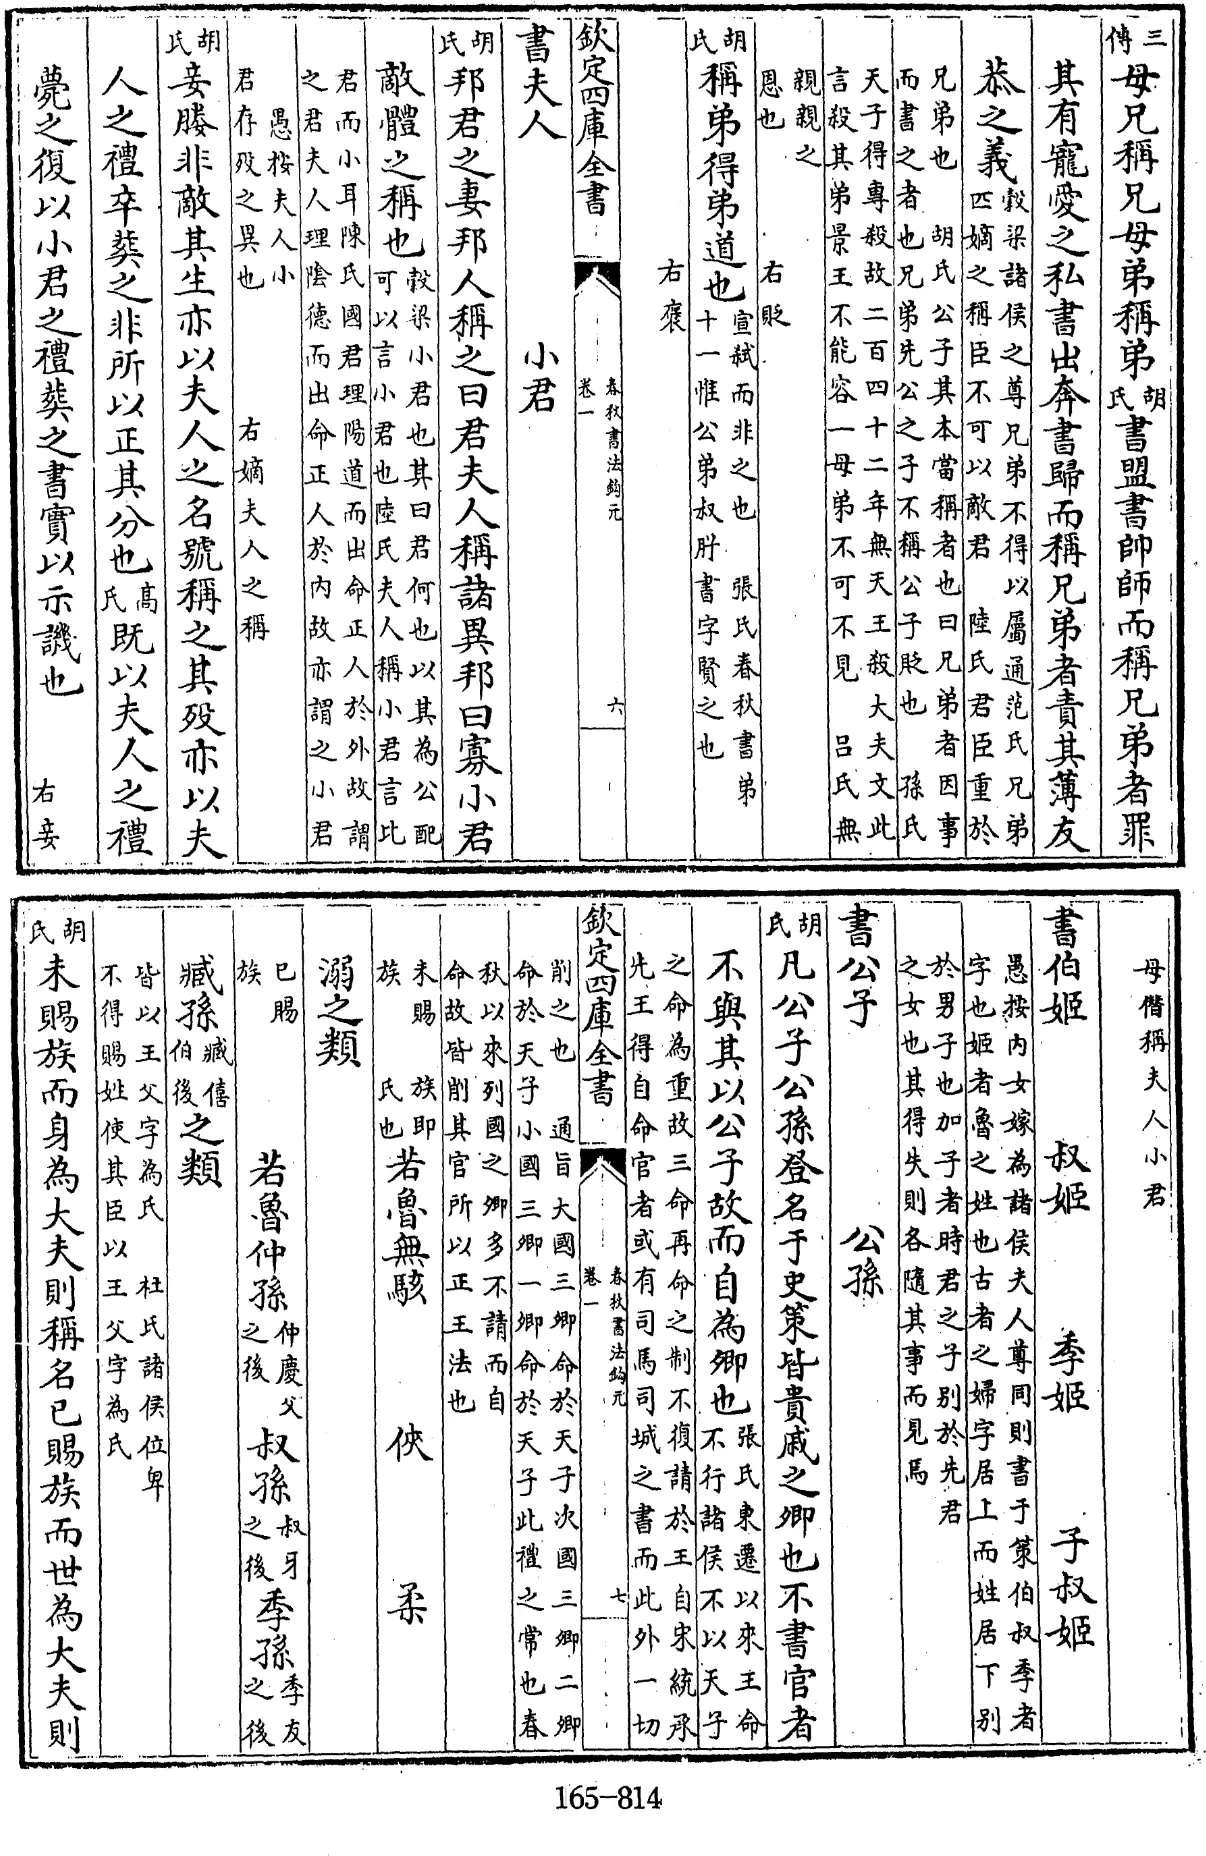 三傳母兄稱兄母弟稱弟胡氏書盟書帥師而稱兄弟者罪
其有寵愛之私書出奔書歸而稱兄弟者責其薄友
恭之義榖梁諸侯之尊兄弟不得以屬通范氏兄弟
匹嫡之稱臣不可以敵君 陸氏君臣重於
兄弟也 胡氏公子其本當稱者也曰兄弟者因事
而書之者也兄弟先公之子不稱公子貶也 孫氏
天子得專殺故二百四十二年無天王殺大夫文此
言殺其弟景王不能容一母弟不可不見 呂氏無
親親之
恩也 右貶
胡氏稱弟得弟道也宣弑而非之也 張氏春秋書弟
十一惟公弟叔肸書字賢之也
右褒
欽定四庫全書
春秋書法鉤元
卷一
六
書夫人 小君
胡氏邦君之妻邦人稱之曰君夫人稱諸異邦曰寡小君
敵體之稱也榖梁小君也其曰君何也以其為公配
可以言小君也陸氏夫人稱小君言比
君而小耳陳氏國君理陽道而出命正人於外故謂
之君夫人理陰德而出命正人於內故亦謂之小君
愚按夫人小
君存歿之異也 右嫡夫人之稱
胡氏妾媵非敵其生亦以夫人之名號稱之其歿亦以夫
人之禮卒葬之非所以正其分也高氏既以夫人之禮
薨之復以小君之禮葬之書實以示譏也 右妾
母僭稱夫人小君
書伯姬 叔姬 季姬 子叔姬
愚按內女嫁為諸侯夫人尊同則書于策伯叔季者
字也姬者魯之姓也古者之婦字居上而姓居下別
於男子也加子者時君之子別於先君
之女也其得失則各隨其事而見焉
書公子 公孫
胡氏凡公子公孫登名于史策皆貴戚之卿也不書官者
不與其以公子故而自為卿也張氏東遷以來王命
不行諸侯不以天子
之命為重故三命再命之制不復請於王自宋統承
先王得自命官者或有司馬司城之書而此外一切
欽定四庫全書
春秋書法鉤元
卷一
七
削之也 通旨大國三卿命於天子次國三卿二卿
命於天子小國三卿一卿命於天子此禮之常也春
秋以來列國之卿多不請而自
命故皆削其官所以正王法也
未賜族 族即氏也 若魯無駭 俠 柔
溺之類
已賜族 若魯仲孫仲慶父之後 叔孫叔牙之後 季孫季友之後
臧孫臧僖伯後之類
皆以王父字為氏 杜氏諸侯位卑
不得賜姓使其臣以王父字為氏
胡氏未賜族而身為大夫則稱名已賜族而世為大夫則
165-814